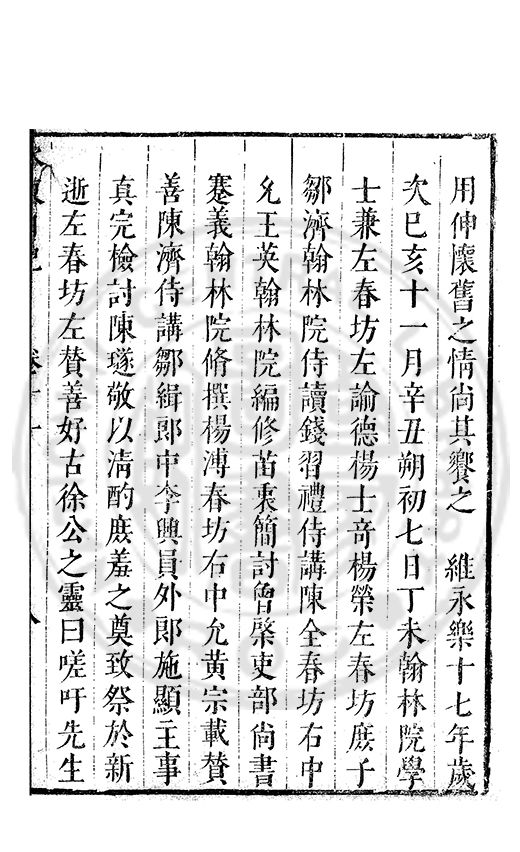 用伸懷舊之情尚其饗之　維永樂十七年歲
次巳亥十一月辛丑朔初七日丁未翰林院學
士兼左春坊左諭德楊士竒楊榮左春坊庻子
鄒濟翰林院侍讀錢習禮侍講陳全春坊右中
允王英翰林院編修苗衷簡討曾棨吏部尚書
蹇義翰林院脩撰楊溥春坊右中允黃宗載賛
善陳濟侍講鄒緝郎中李興員外郎施顯主事
真完檢討陳璲敬以清酌庻羞之奠致祭於新
逝左春坊左賛善好古徐公之靈曰嗟吁先生
卷十
八